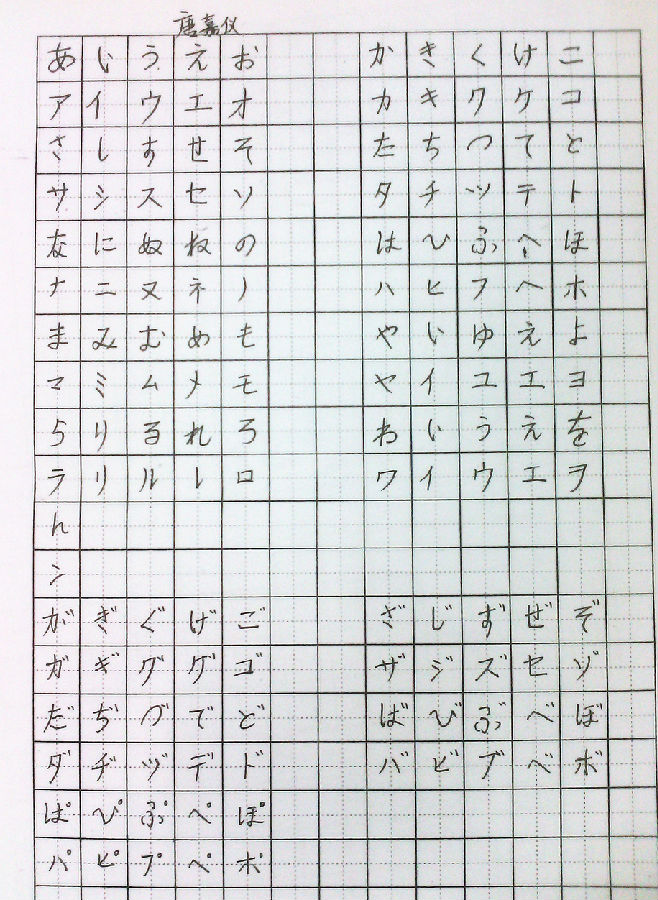 唐嘉仪
あ い う え お か き く け こ
ア イ ウ エ オ カ キ ク ケ コ
さ し す せ そ た ち つ て と
サ シ ス セ ソ タ チ ツ テ ト
な に ぬ ね の は ひ ふ へ ほ
ナ ニ ヌ ネ ノ ハ ヒ フ ヘ ホ
ま み む め も や い ゆ え よ
マ ミ ム メ モ ヤ イ ユ エ ヨ
ら り る れ ろ わ い う え を
ラ リ ル レ ロ ワ イ ウ エ ヲ
ん
ン
が ぎ ぐ げ ご ざ じ ず ぜ ぞ
ガ ギ グ ゲ ゴ ザ ジ ズ セ ゾ
だ ぢ づ で ど ば び ぶ べ ぼ
ダ ヂ ヅ デ ド バ ビ ブ ベ ボ
ぱ ぴ ぷ ぺ ぽ
パ ピ プ ペ ポ